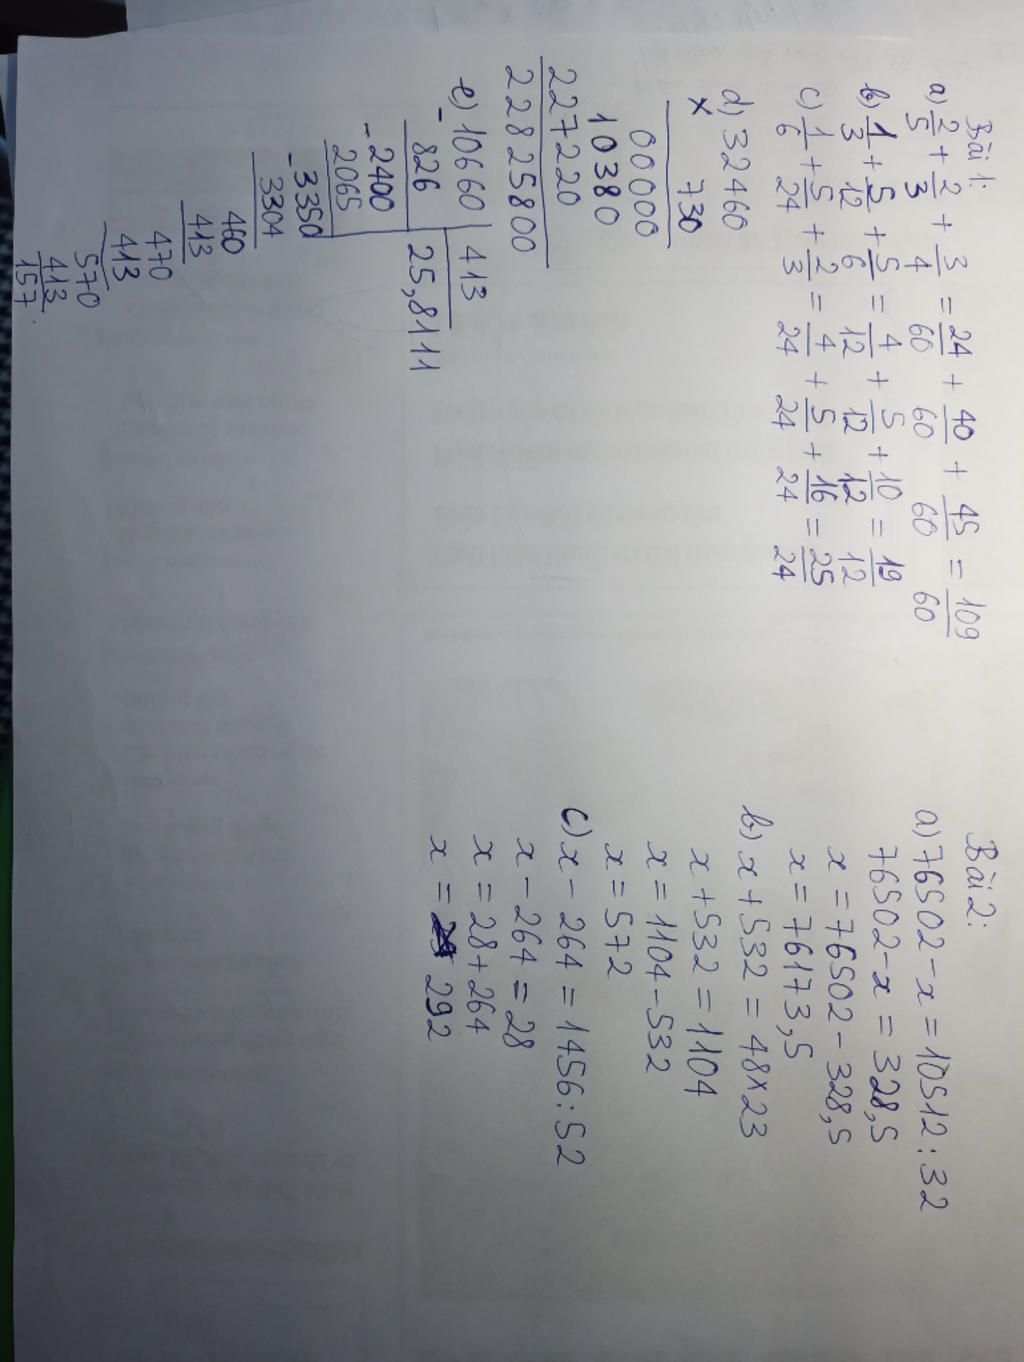 Bài 1:
a) 2/5 + 2/3 + 3/4 = 24/60 + 40/60 + 45/60 = 109/60
b) 1/3 + 5/12 + 5/6 = 4/12 + 5/12 + 10/12 = 19/12
c) 1/6 + 5/24 + 2/3 = 4/24 + 5/24 + 16/24 = 25/24
d) 32460
× 730
00000
10380
227220
22825800
e) 10660 413
- 826 25,8111
- 2400
2065
- 3350
3304
460
413
470
413
570
413
157
Bài 2:
a) 76502 - x = 10512 : 32
76502 - x = 328,5
x = 76502 - 328,5
x = 76173,5
b) x + 532 = 48 × 23
x + 532 = 1104
x = 1104 - 532
x = 572
c) x - 264 = 1456 : 52
x - 264 = 28
x = 28 + 264
x = 292